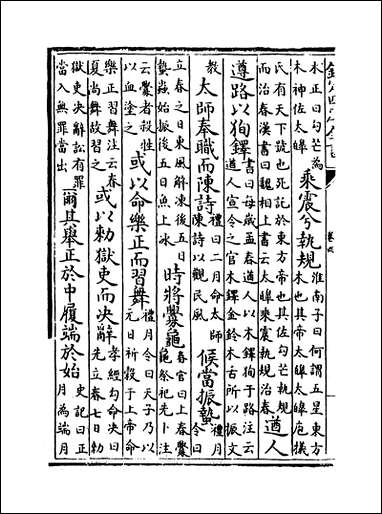 欽定四庫全書
木正曰勾芒為
木神佐太皞
乘震兮執規
淮南子曰何謂五星東方
木也其帝太皞太皞庖犧
氏有天下號也死託於東方帝也其佐勾芒執規
而治春漢書曰魏相上書云太皞乘震執規治春
遒人
遵路以狥鐸
書曰每歲孟春遒人以木鐸狥于路注云
遒人宣令之官木鐸金鈴木舌所以振文
教
太師奉職而陳詩
禮曰二月命太師
陳詩以觀民風
候當振蟄
禮月
令曰
立春之日東風解凍後五日
蟄蟲始振後五日魚上冰
時將釁龜
春官曰上春釁
龜祭祀先卜注
云釁者殺牲
以血塗之
或以命樂正而習舞
禮月令曰天子乃以
元日祈穀于上帝命
樂正習舞注云春
夏尚舞故習之
或以勅獄吏而决辭
孝經勾命决曰
先立春七日勅
獄吏决辭訟有罪
當入無罪當出
爾其舉正於中履端於始
史記曰正
月為端月